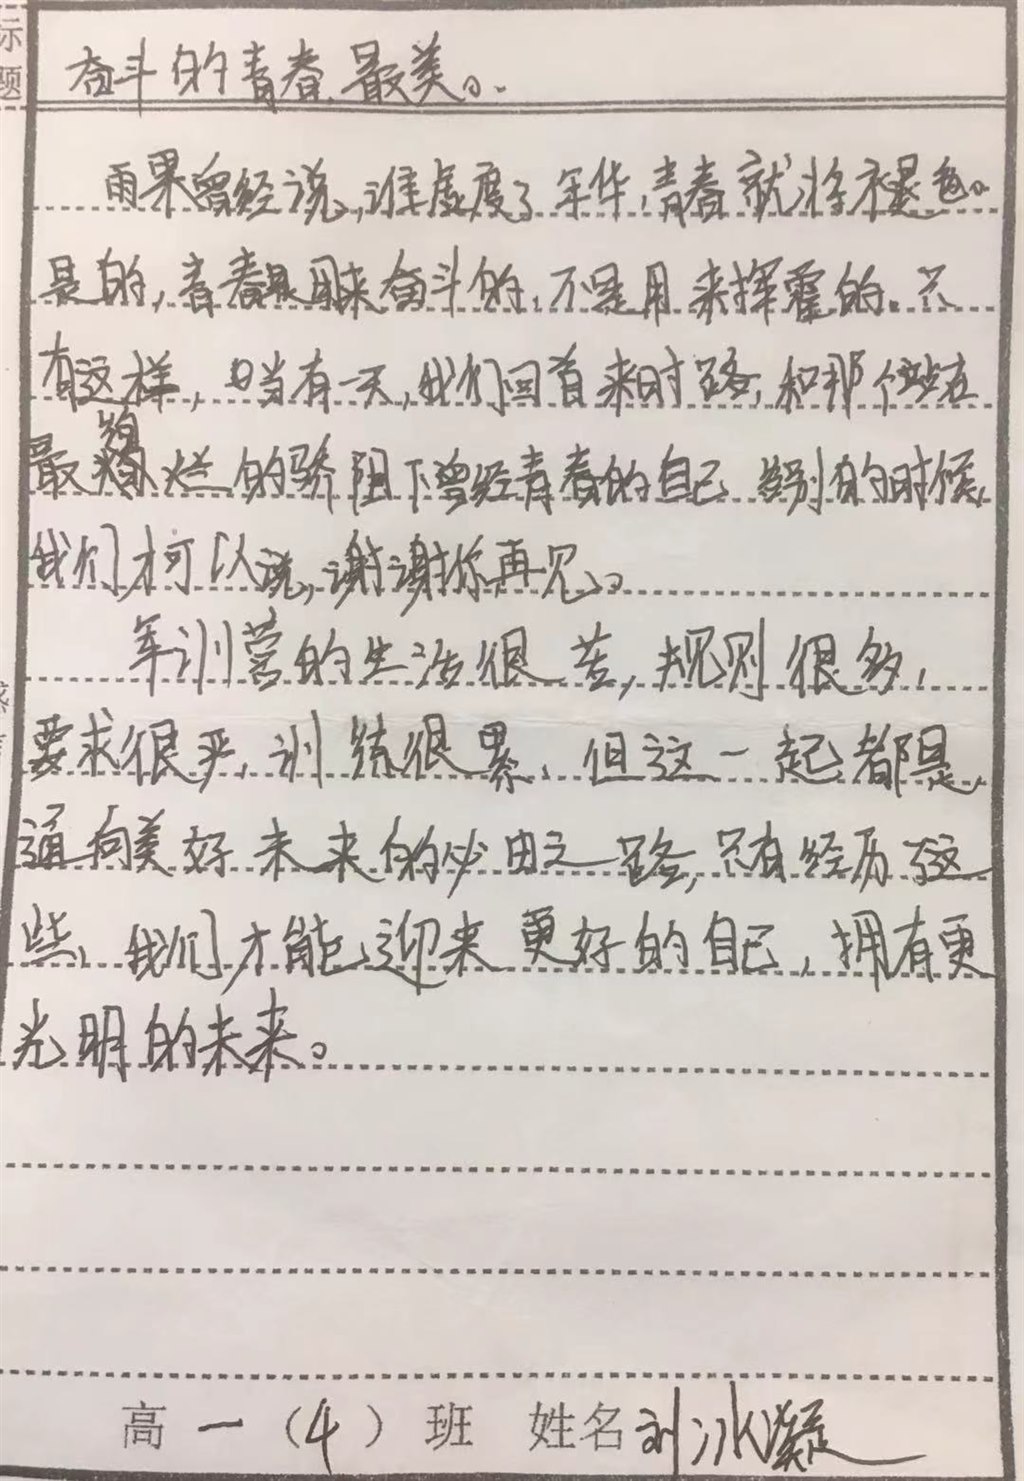 标题
奋斗的青春最美。
雨果曾经说,谁虚度了年华,青春就将褪色。
是的,青春是用来奋斗的,不是用来挥霍的。只
有这样,当有一天,我们回首来时路,和那个站在
最绚烂的骄阳下曾经青春的自己告别的时候,
我们才可以说,谢谢你再见。
军训营的生活很苦,规则很多,
要求很严,训练很累,但这一起都是
通向美好未来的必由之路,只有经历这
些,我们才能迎来更好的自己,拥有更
光明的未来。
高一(4)班 姓名刘冰凝